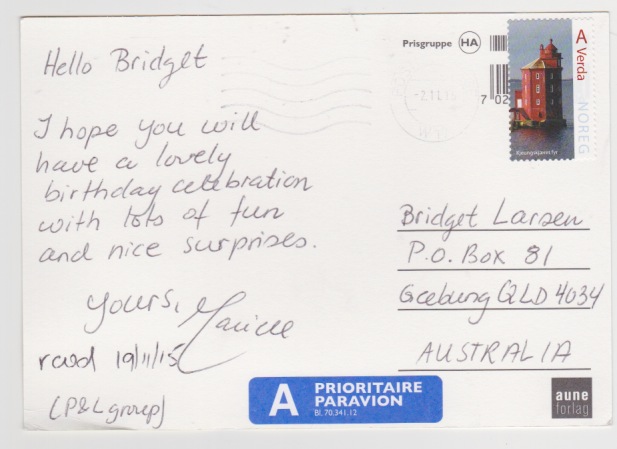 Hello Bridget
I hope you will
have a lovely
birthday celebration
with lots of fun
and nice surprises.
Yours,
rcvd 19/11/15
(P&L group)
Prisgruppe HA
-2.11.15
7 02
A Verda
NOREG
Kjeungskjæret fyr
Bridget Larsen
P.O. Box 81
Geebung QLD 4034
AUSTRALIA
A PRIORITAIRE
PARAVION
Bl. 70.341.12
aune
forlag